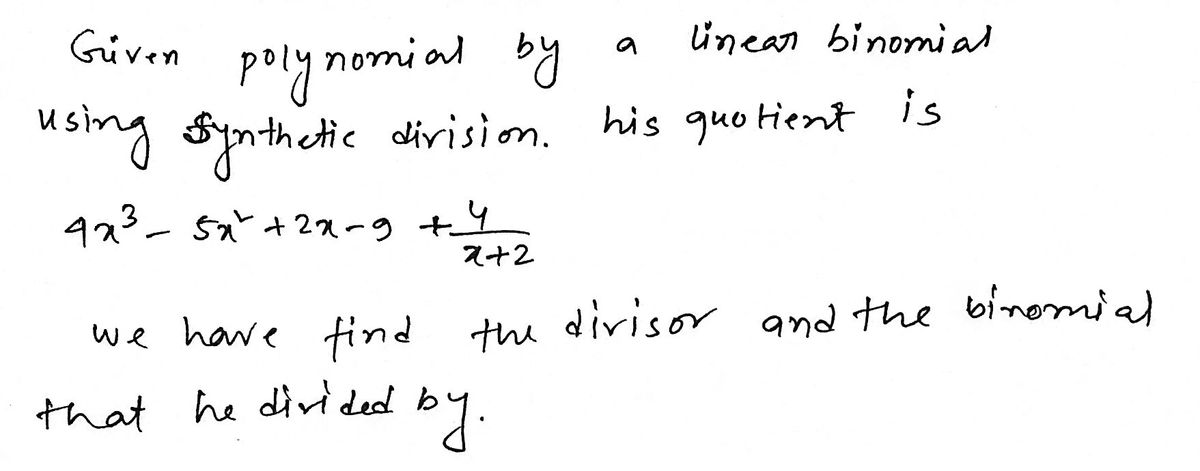 Given polynomial by a linear binomial
using synthetic division. his quotient is
4x³ - 5x² + 2x - 9 + 4/(x+2)
we have find the divisor and the binomial
that he divided by.